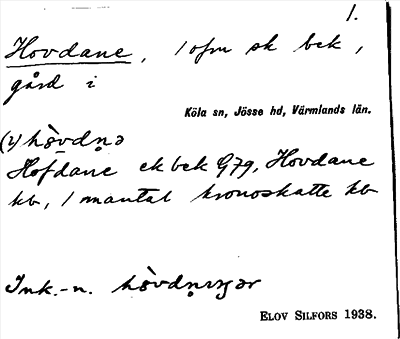 1.
Hovdane, 1 ofm sk bek,
gård i
Köla sn, Jösse hd, Värmlands län.
Hofdane ek bek G79, Hovdane
kb, 1 mantal kronoskatte kb
Ink.-n.
ELOV SILFORS 1938.